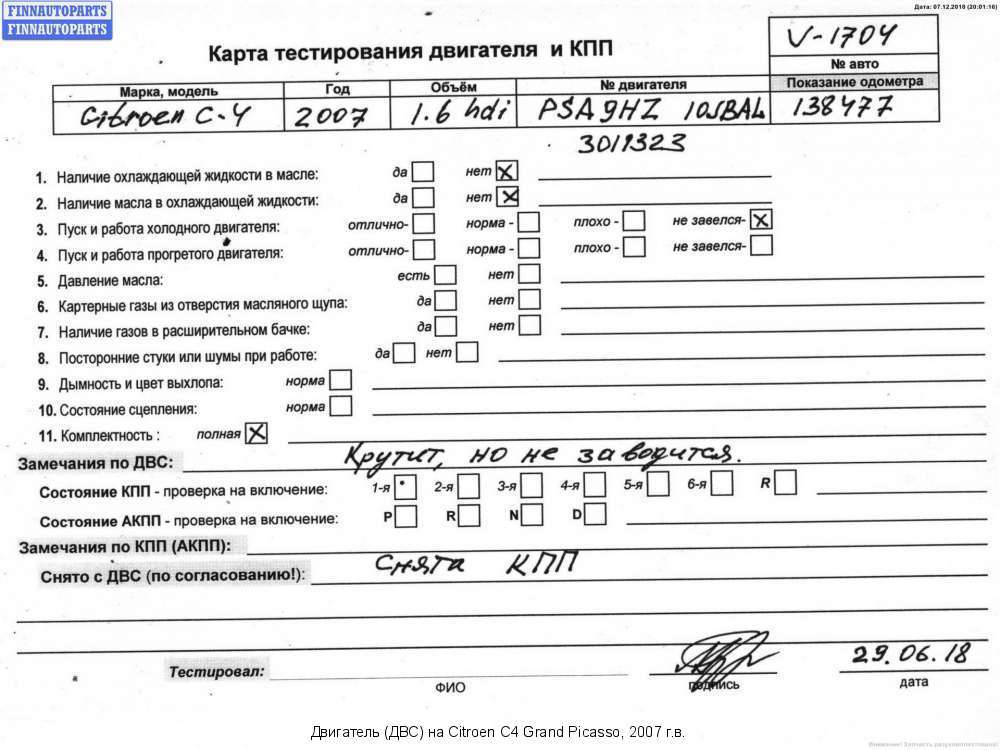 FINNAUTOPARTS
FINNAUTOPARTS
Дата: 07.12.2018 (20:01:16)
Карта тестирования двигателя и КПП
V-1704
№ авто
Марка, модель Год Объём № двигателя Показание одометра
Citroen C-4 2007 1.6 hdi PSA9HZ 10JBAL 138477
3011323
1. Наличие охлаждающей жидкости в масле: да нет X
2. Наличие масла в охлаждающей жидкости: да нет X
3. Пуск и работа холодного двигателя: отлично- норма - плохо - не завелся- X
4. Пуск и работа прогретого двигателя: отлично- норма - плохо - не завелся-
5. Давление масла: есть нет
6. Картерные газы из отверстия масляного щупа: да нет
7. Наличие газов в расширительном бачке: да нет
8. Посторонние стуки или шумы при работе: да нет
9. Дымность и цвет выхлопа: норма
10. Состояние сцепления: норма
11. Комплектность : полная X
Замечания по ДВС: Крутит, но не заводится.
Состояние КПП - проверка на включение: 1-я 2-я 3-я 4-я 5-я 6-я R
Состояние АКПП - проверка на включение: P R N D
Замечания по КПП (АКПП):
Снято с ДВС (по согласованию!): Снята КПП
Тестировал: 29.06.18
ФИО подпись дата
Двигатель (ДВС) на Citroen C4 Grand Picasso, 2007 г.в.
Внимание! Запчасть разукомплектована!